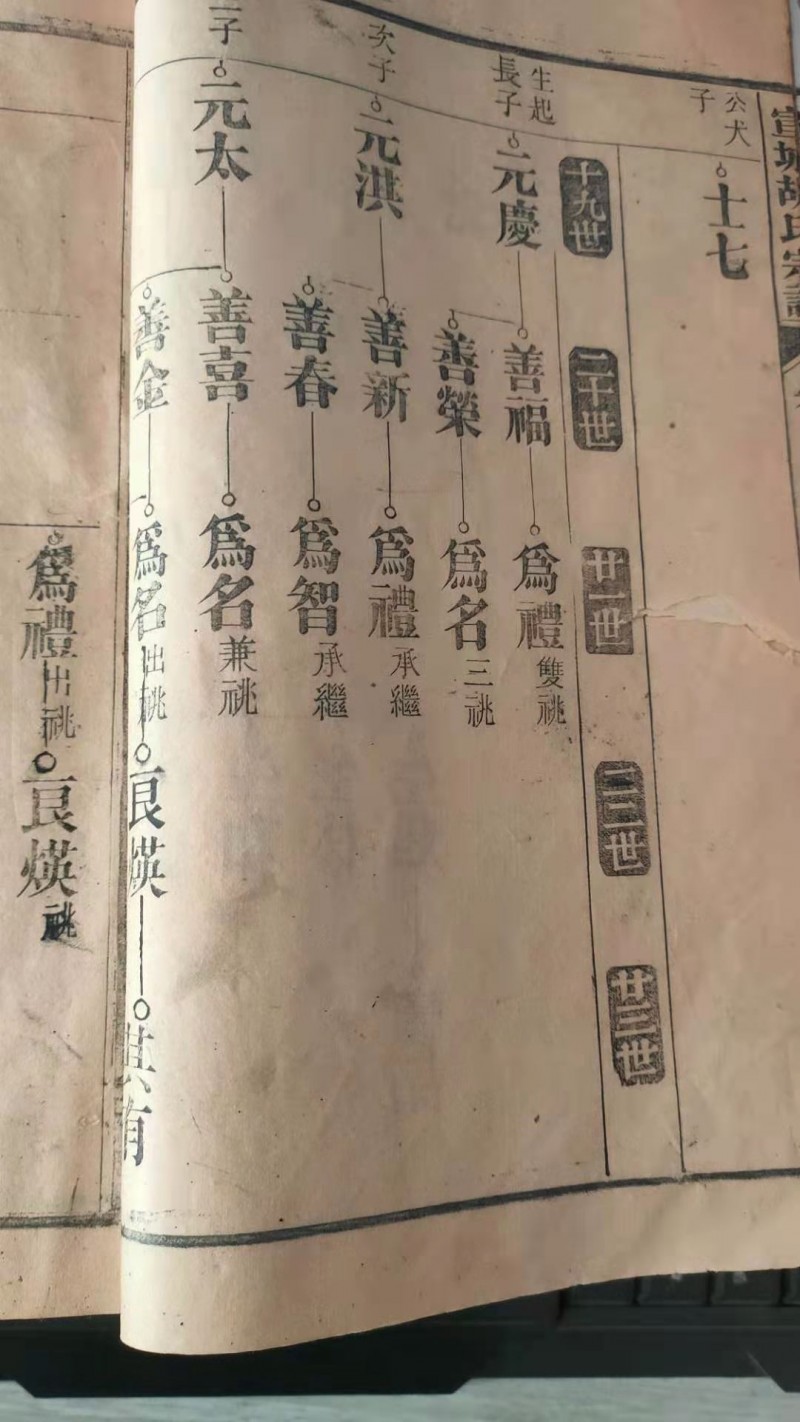 宣城胡氏宗譜
公犬
子
士七
十九世
二十世
廿一世
二二世
廿三世
生起
長子
元慶
善福
爲禮 雙祧
善榮
爲名 三祧
次子
元淇
善新
爲禮 承繼
善春
爲智 承繼
子
元太
善喜
爲名 兼祧
善金
爲名 出祧
良煐
其有
爲禮 出祧
良煐 祧